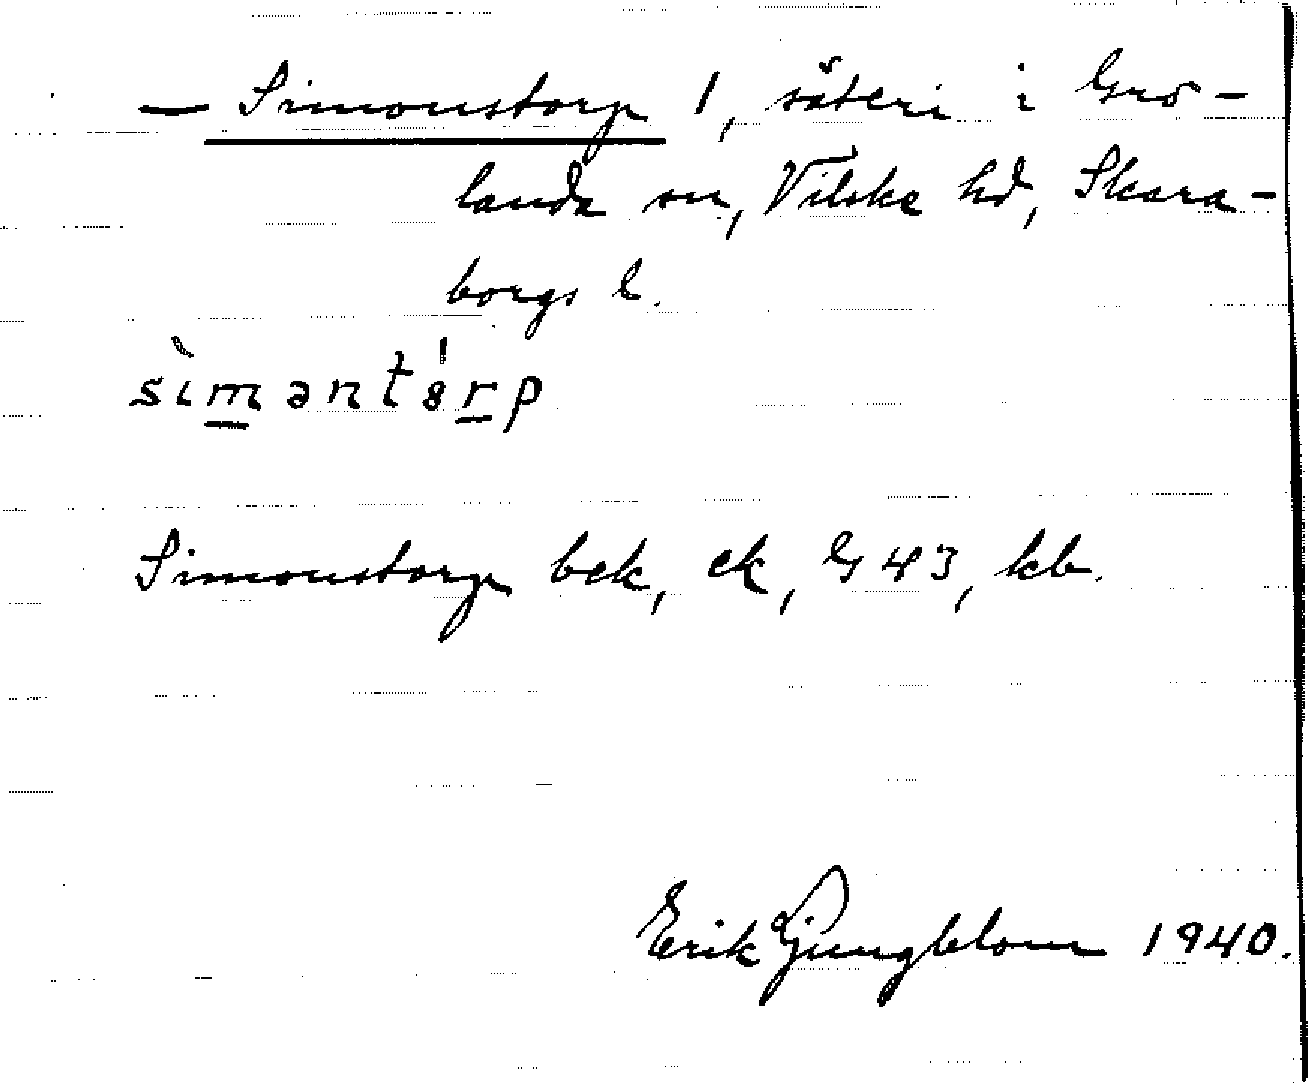 — Simonstorp 1, säteri i Grö-
landa sn, Vilske hd, Skara-
borgs l.
sìmantɵ́rp
Simonstorp bek, ek, G 43, kb.
Erik Ljungblom 1940.